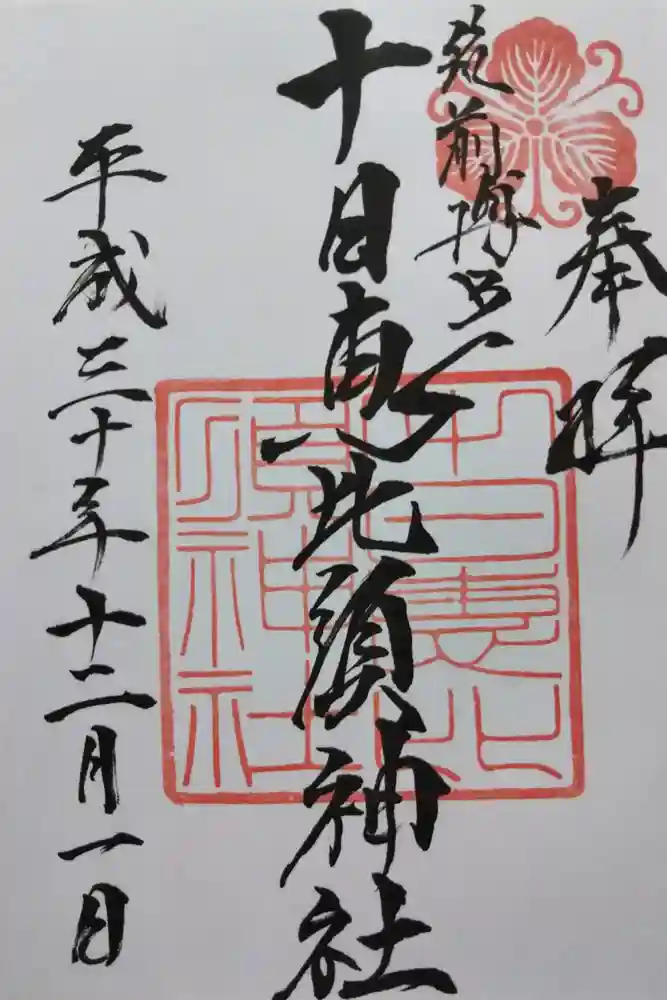 奉拝
筑前博多
十日恵比須神社
平成三十年十二月一日
十日恵比
須神社